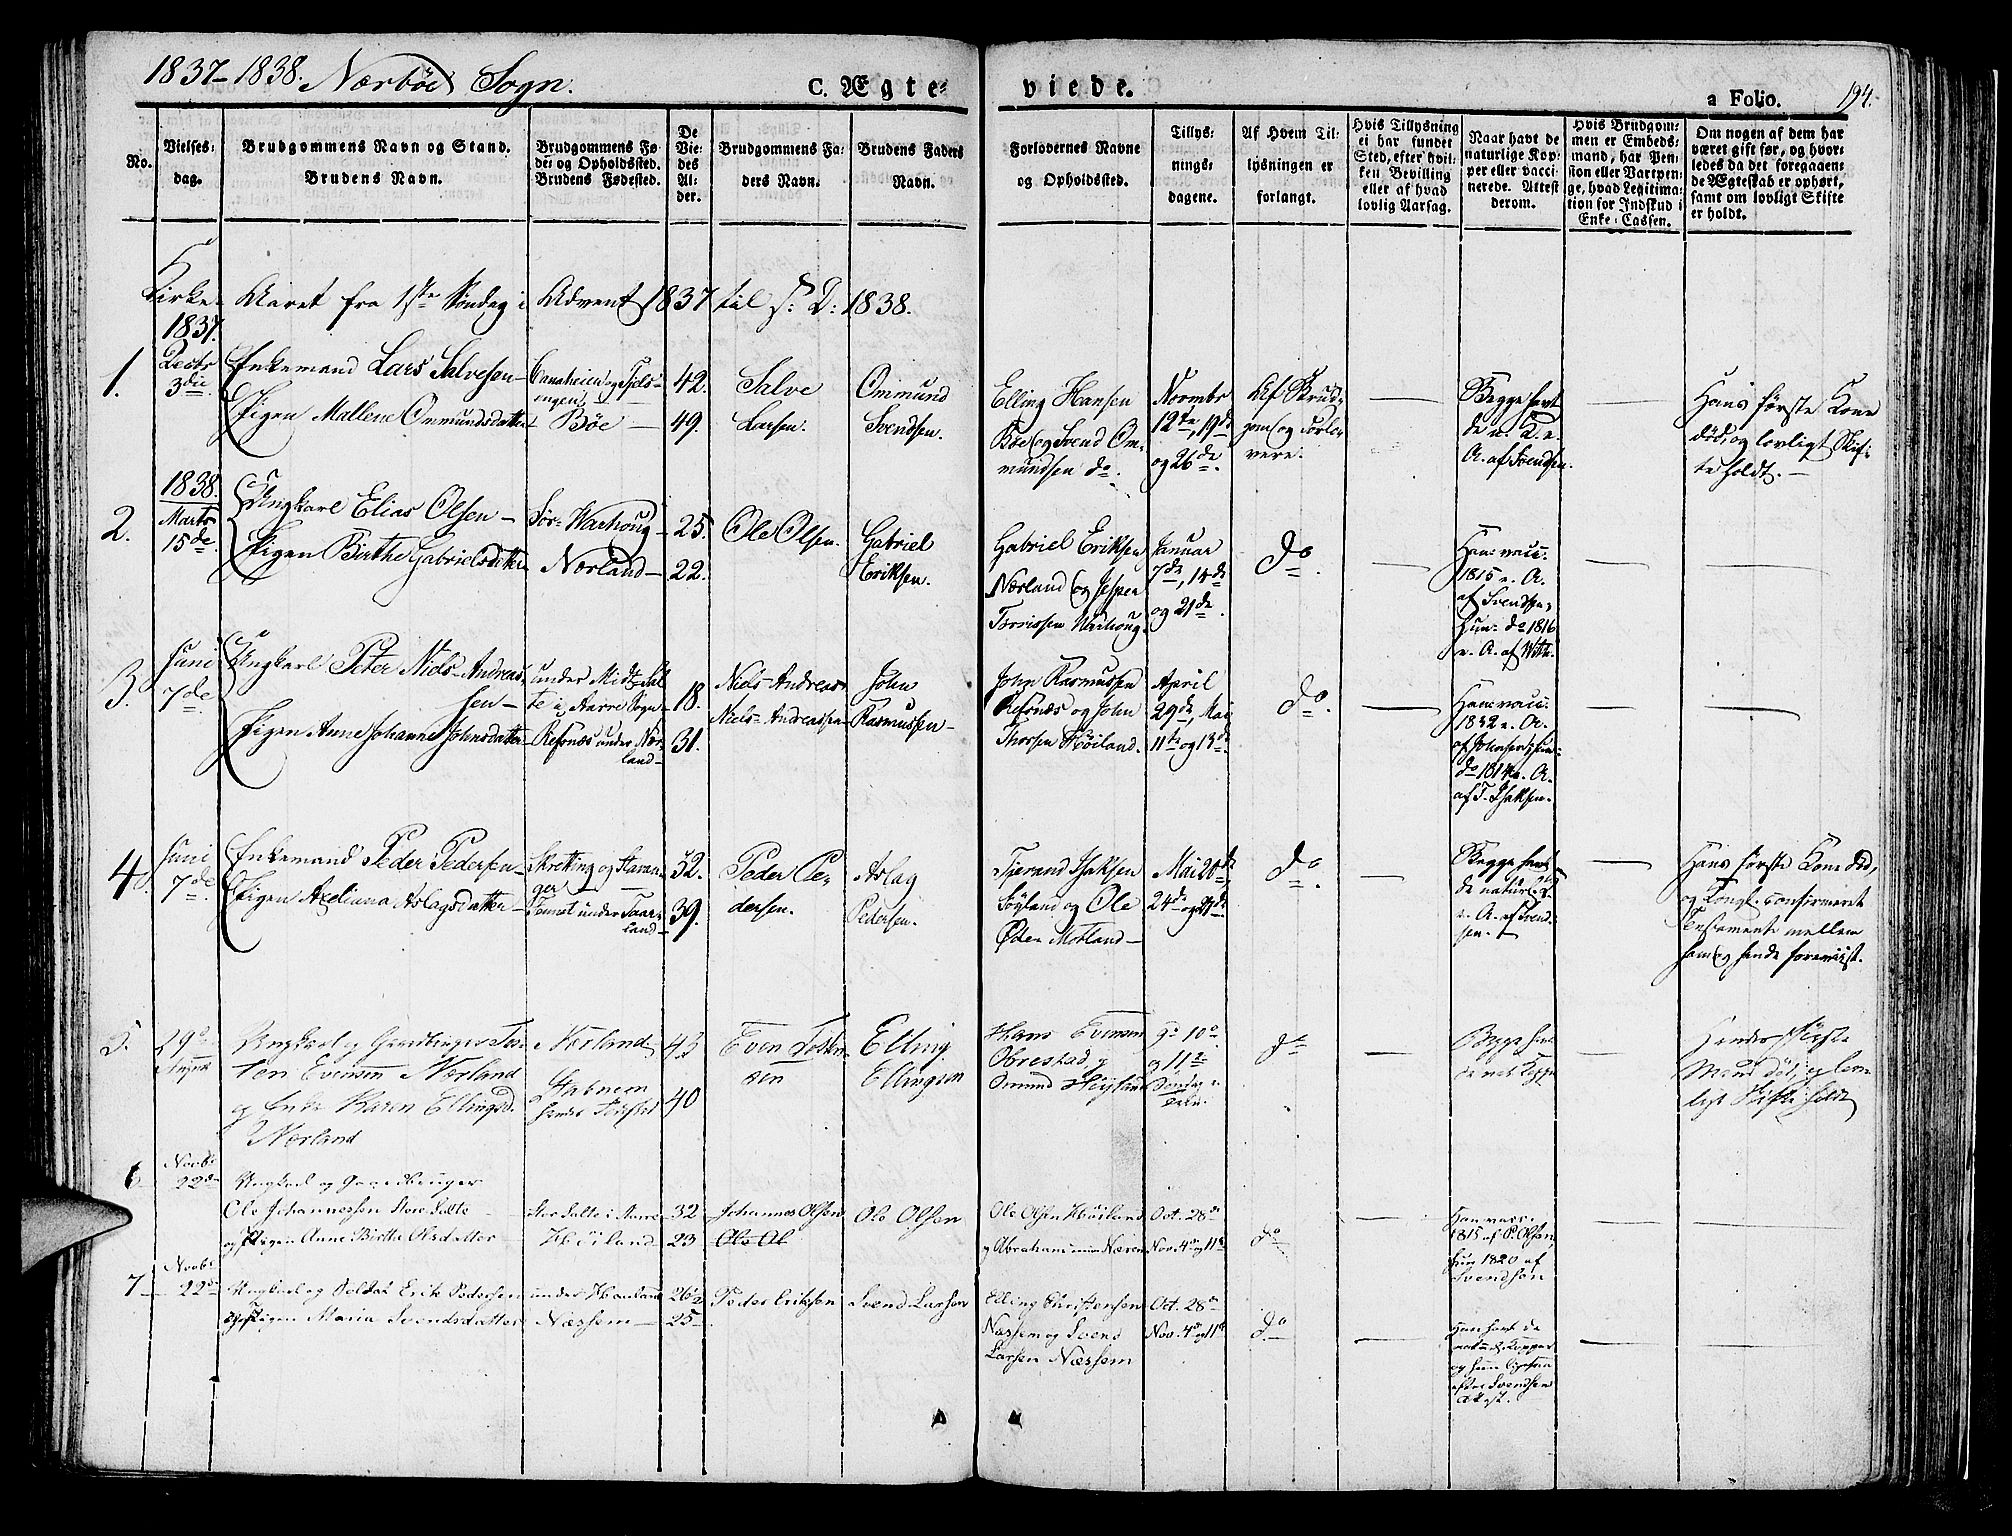 1837-1838. Nærböe Sogn.
C. Ægte=
viede.
a Folio. 194.
No.
Vielses=
dag.
Brudgommens Navn og Stand.
Brudens Navn.
Brudgommens Fø=
de= og Opholdssted.
Brudens Fødested.
De
Vie=
des
Al=
der.
Brudgommens Fa=
ders Navn.
Brudens Faders
Navn.
Forlovernes Navne
og Opholdssted.
Tillys=
nings=
dagene.
Af Hvem Til=
lysningen er
forlangt.
Hvis Tillysning
ei har fundet
Sted, efter hvil=
ken Bevilling
eller af hvad
lovlig Aarsag.
Naar havt de
naturlige Kop=
per eller vacci=
nerede. Attest
derom.
Hvis Brudgom=
men er Embeds=
mand, har Pen=
sion eller Vartpen=
ge, hvad Legitima=
tion for Indskud i
Enke=Cassen.
Om nogen af dem har
været gift før, og hvor=
ledes da det foregaaen=
de Ægteskab er ophørt,
samt om lovligt Skifte
er holdt.
Kirke-Aaret fra 1ste Söndag i Advent 1837 til s: D: 1838.
1837.
1. Decbr 3die
Enkemand Lars Salvesen
Pigen Mallene Ommundsdatter
Bøe
42.
49.
Salve
Larsen.
Ommund
Svendsen.
Elling Hansen
Böe og Svend Om-
mundsen do.
Novmbr
12te, 19de
og 26de.
Af Brud-
gom og Forlo-
vere.
Begge havt
de n. K. e.
A. af Svendsen.
Hans første Kone
död, og lovligt Skif-
te holdt.
1838.
2. Marts 15de
Ungkarl Elias Olsen
Pigen Birthe Gabrielsdatter
Sör-Warhoug
Nærland
25.
22.
Ole Olsen.
Gabriel
Eriksen.
Gabriel Eriksen
Nærland og Jesper
Torrissen Warhoug.
Januar
7de, 14de
og 21de.
do.
Han: vacc.
1815 e. A.
af Svendsen,
Hun: do 1816
e. A. af Witte.
3. Juni 7de
Ungkarl Peter Niels-Andreas-
sen
Pigen Anne Johanne Johnsdatter
under Midt-Sal-
te i Aarre Sogn
Refsnæs under Nær-
land
18.
31.
Niels-Andreas
Niels-Andreassen
John
Rasmussen
John Rasmussen
Refsnæs og John
Thorsen Höiland.
April
29de, Mai
11te og 13de.
do.
Han vacc.
1832 e. A.
af Johnsen, Hun
do 1814 e. A.
af T. Isaksen.
4. Juni 7de
Enkemand Peder Pedersen
Pigen Axeliana Aslagsdatter
Skretting og Stavan-
ger
Tomot under Taar-
land
52.
39.
Peder Pe-
dersen.
Aslag
Pedersen.
Tjerand Isaksen
Söyland og Ole
Öden Motland
Mai 20de
24de og 27de
do.
Begge havt
de naturl. K.
e. A. af Svend-
sen.
Hans første Kone död,
og Kongl. confirmeret
Testamente mellem
ham og hende foreviist.
5. 29de
Ungkarl og Gaardbruger Tor-
ten Evensen Nærland
og Enke Karen Ellingsd.
Nærland
Nærland
43
40
Even Tosten-
sen
Elling
Ellingsen
Hans Evensen
Obrestad og
Omund Höyland
9de 10de
og 11te
Söndag e.
do
Begge havt
de nat. Kopper
Hendes første
Mand död, og lov-
ligt Skifte holdt
6 Novbr 22de
Ungkarl og Gaardbruger
Ole Johannessen Store Salte
og Pigen Anne Birthe Olsdatter
Stor Salte i Aarre
Höiland
32
23
Johannes Olsen
Ole Ol
Ole Olsen
Ole Olsen Höiland
og Abraham Næren
Oct. 28de
Nov. 4de og 11te
do
Han vacc.
1815 af P. Olsen
hun 1820 af
Svendsen
7 Novbr 22de
Ungkarl og Soldat Erik Pedersen
og Pigen Maria Svendsdatter
under Haaland
Næssem
26½
25
Peder Eriksen
Svend Larsen
Elling Christensen
Næssem og Svend
Larsen Næssem
Oct. 28de
Nov. 4de og 11te
do
Han havt de
naturl. Kopper
og hun ligesaa
efter Svendsens
Attest.